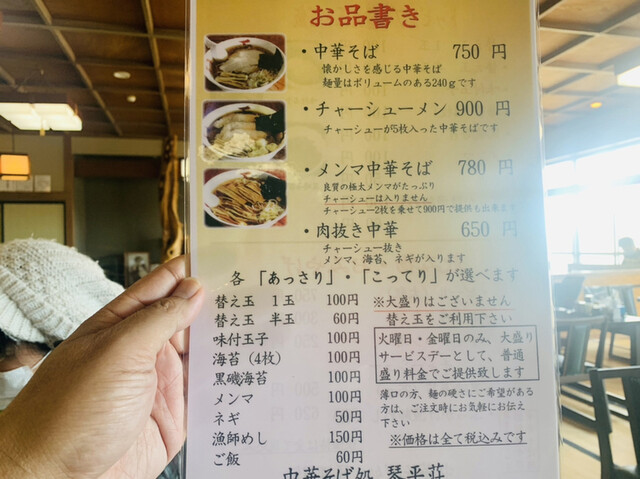 お品書き
・中華そば 750 円
懐かしさを感じる中華そば
麺量はボリュームのある240gです
・チャーシューメン 900 円
チャーシューが5枚入った中華そばです
・メンマ中華そば 780 円
良質の極太メンマがたっぷり
チャーシューは入りません
チャーシュー2枚を乗せて900円で提供も出来ます
・肉抜き中華 650 円
チャーシュー抜き
メンマ、海苔、ネギが入ります
各「あっさり」・「こってり」が選べます
替え玉 1玉 100円
替え玉 半玉 60円
味付玉子 100円
海苔(4枚) 100円
黒磯海苔 100円
メンマ 100円
ネギ 50円
漁師めし 150円
ご飯 60円
※大盛りはございません
替え玉をご利用下さい
火曜日・金曜日のみ、大盛り
サービスデーとして、普通
盛り料金でご提供致します
薄口の方、麺の硬さにご希望がある
方は、ご注文時にお気軽にお伝え
下さい
※価格は全て税込みです
中華そば処 琴平荘